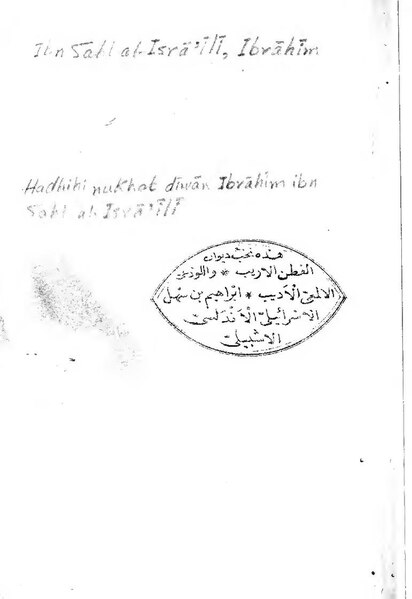 Ibn Sahl al-Isrā'īlī, Ibrāhīm
Hadhihi nukhat dīwān Ibrāhīm ibn
Sahl al-Isrā'īlī
هذه نخب ديوان
الفطن الاريب * واللوذعي
الالمعي الأديب * ابراهيم بن سهل
الاسرائيلي الأندلسي
الاشبيلي